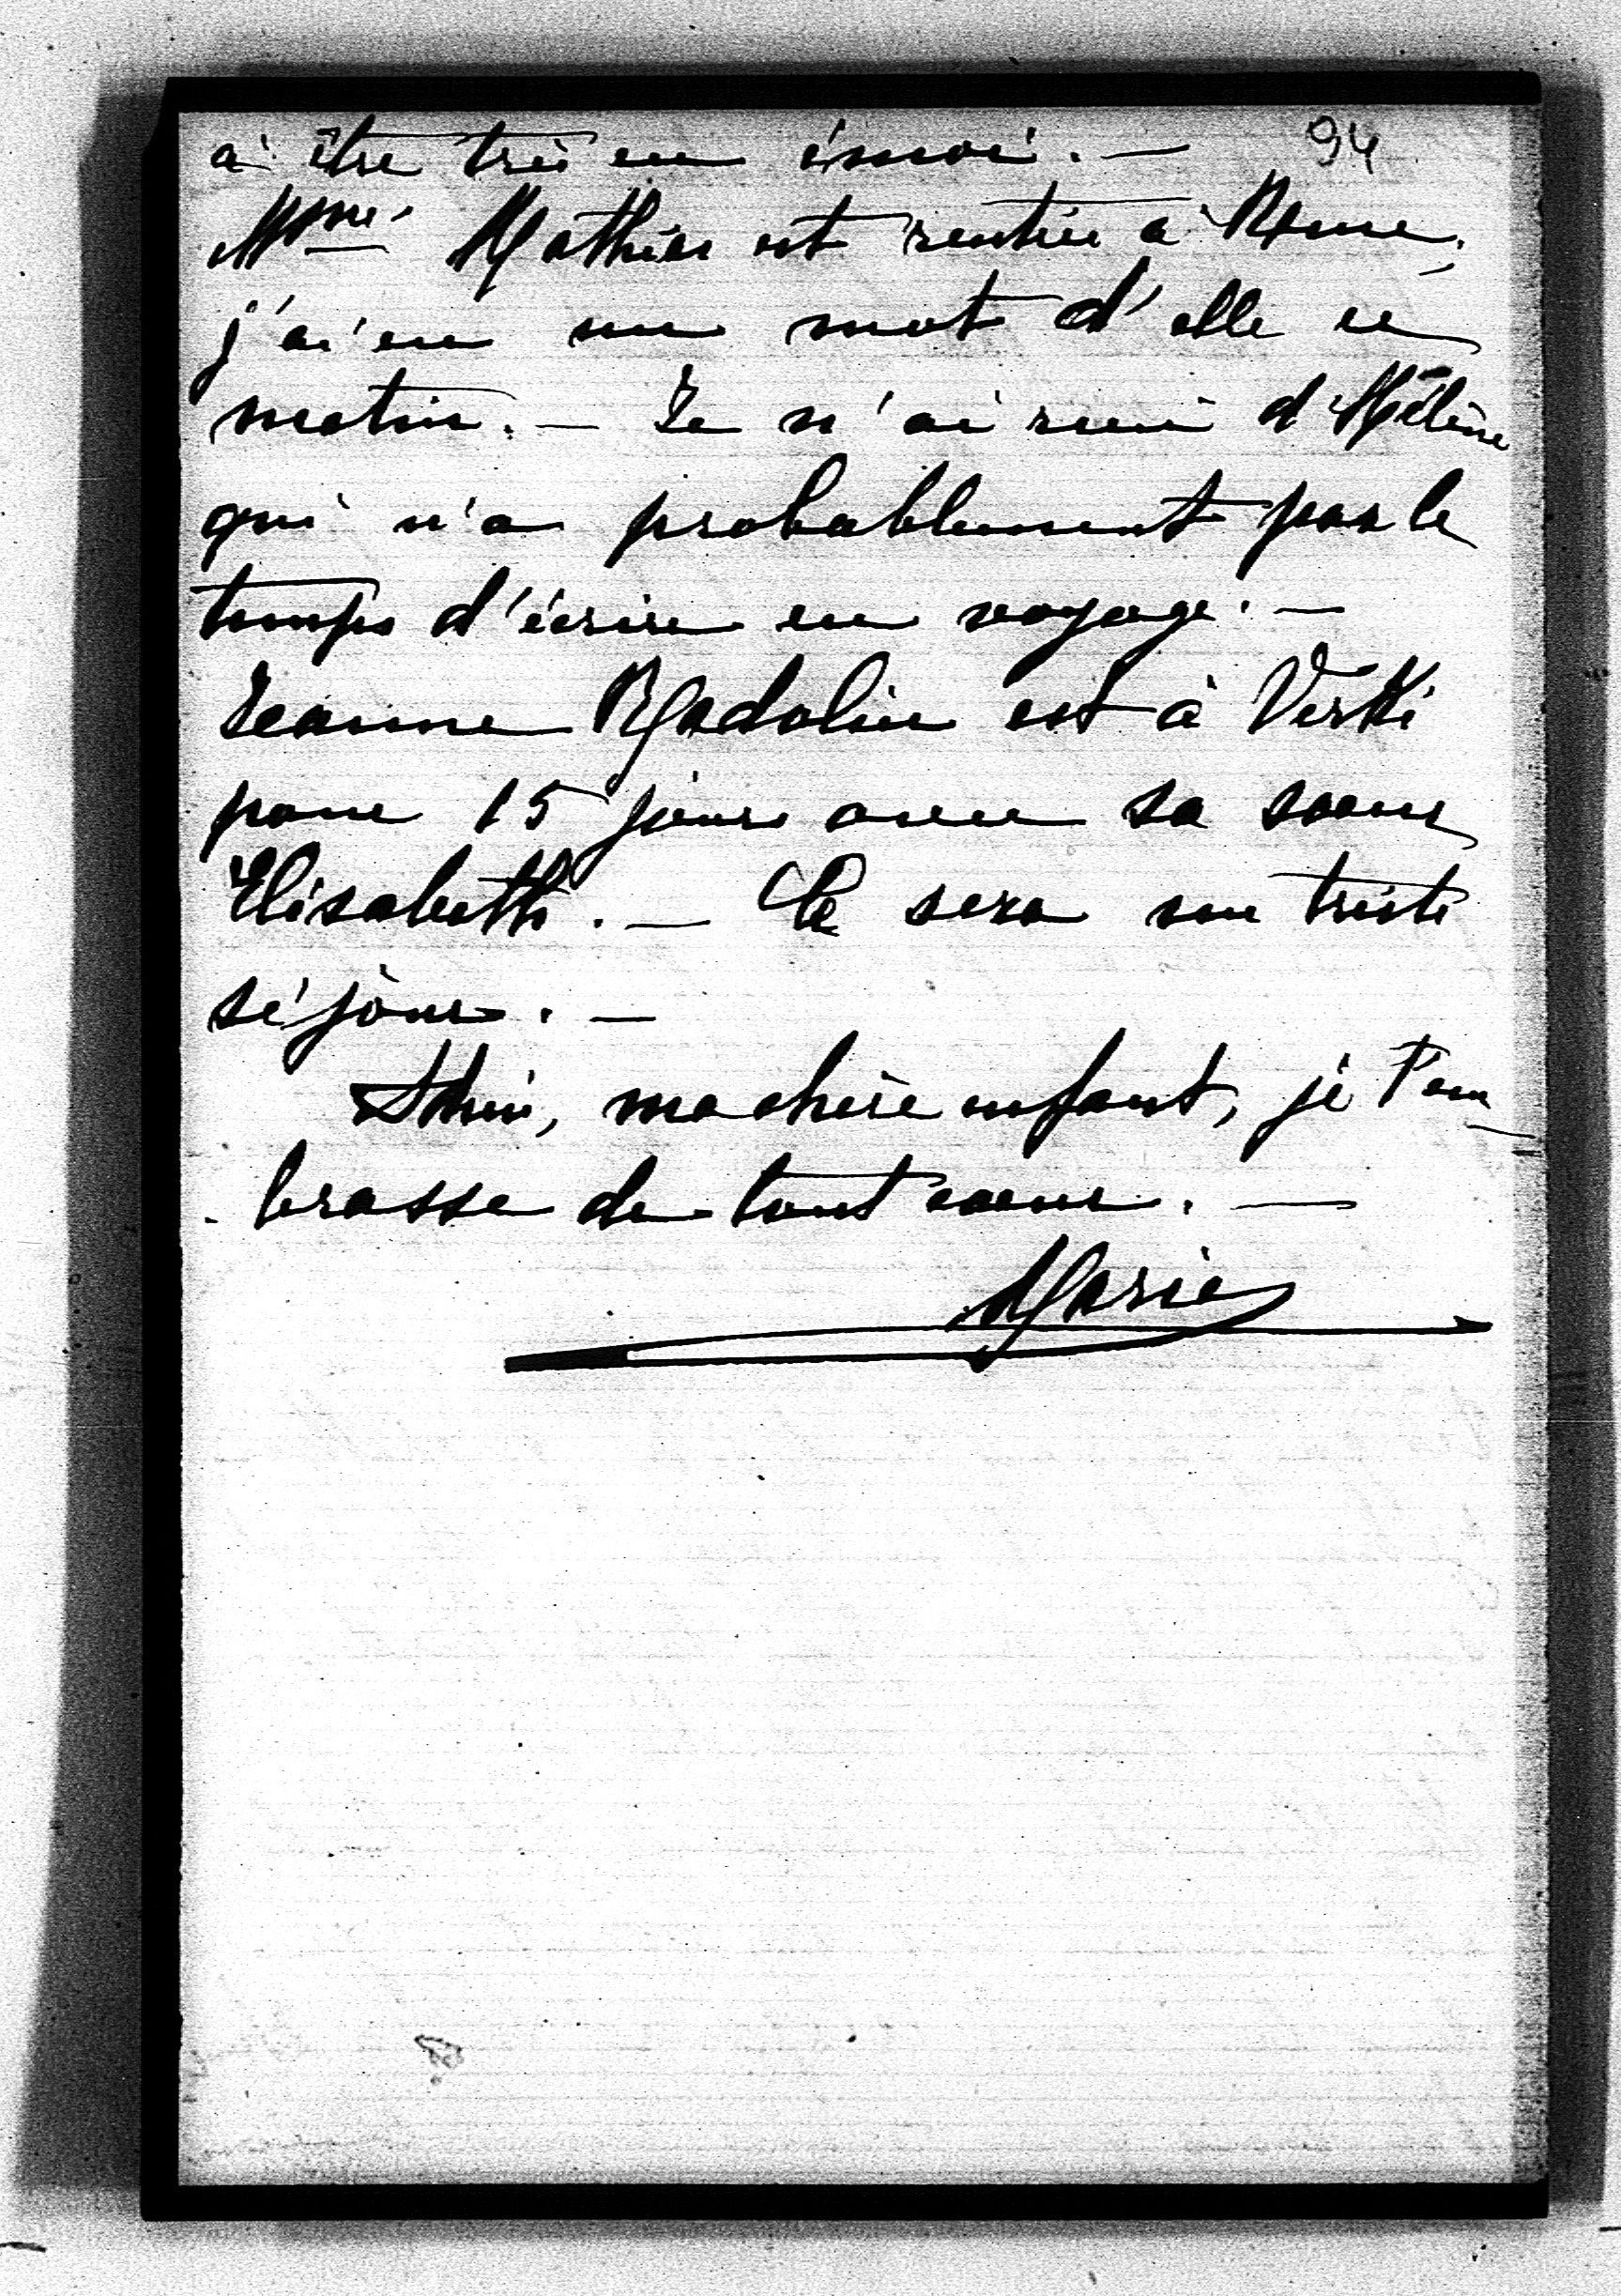 94
à être très en émoi. —
Mme Mathieu est rentrée à Rome,
j'ai eu un mot d'elle ce
matin. — Je n'ai rien d'Hélène
qui n'a probablement pas le
temps d'écrire en voyage. —
Jeanne Radolin est à Verki
pour 15 jours avec sa soeur
Elisabeth. — Ce sera un triste
séjour. —
Adieu, ma chère enfant, je t'em
brasse de tout coeur. —
Marie